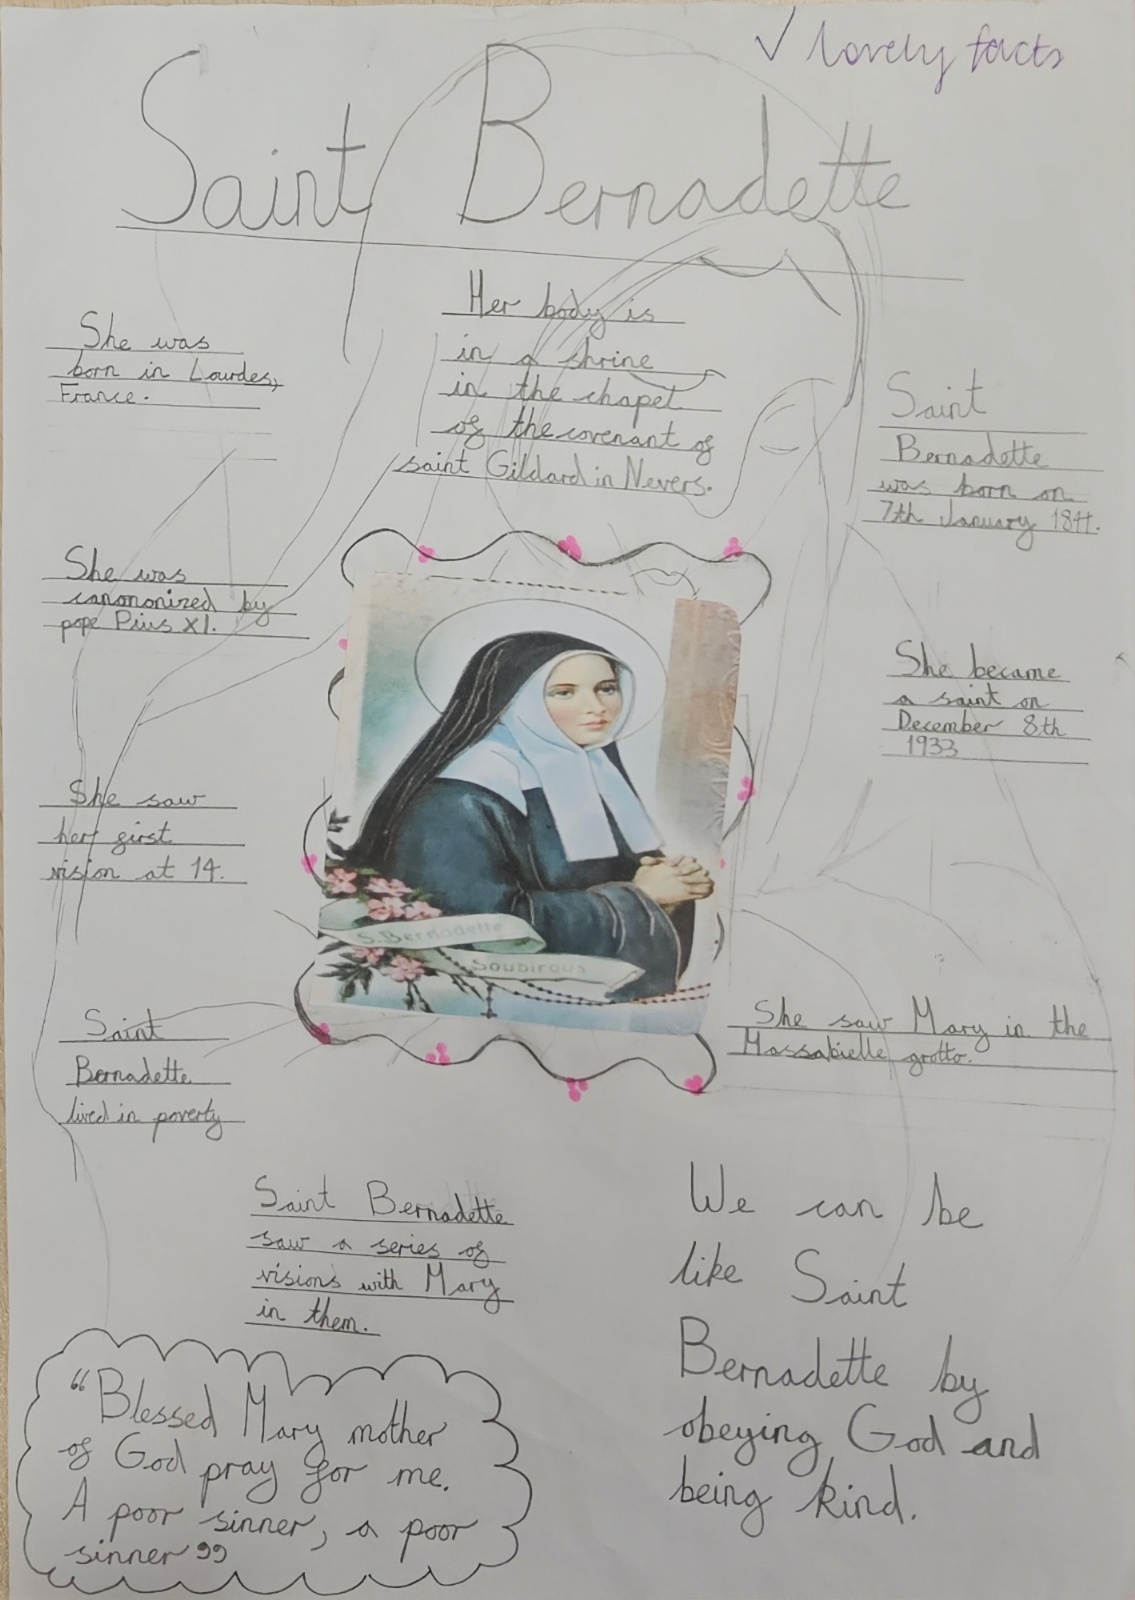 ✓ lovely facts
Saint Bernadette
Her body is
in a shrine
in the chapel
of the covenant of
saint Gildard in Nevers.
She was
born in Lourdes,
France.
Saint
Bernadette
was born on
7th January 1844.
She was
canononized by
pope Pius XI.
She became
a saint on
December 8th
1933
She saw
her first
vision at 14.
S. Bernadette
Soubirous
Saint
Bernadette
lived in poverty
She saw Mary in the
Massabielle grotto.
Saint Bernadette
saw a series of
visions with Mary
in them.
We can be
like Saint
Bernadette by
obeying God and
being kind.
“Blessed Mary mother
of God pray for me.
A poor sinner, a poor
sinner”